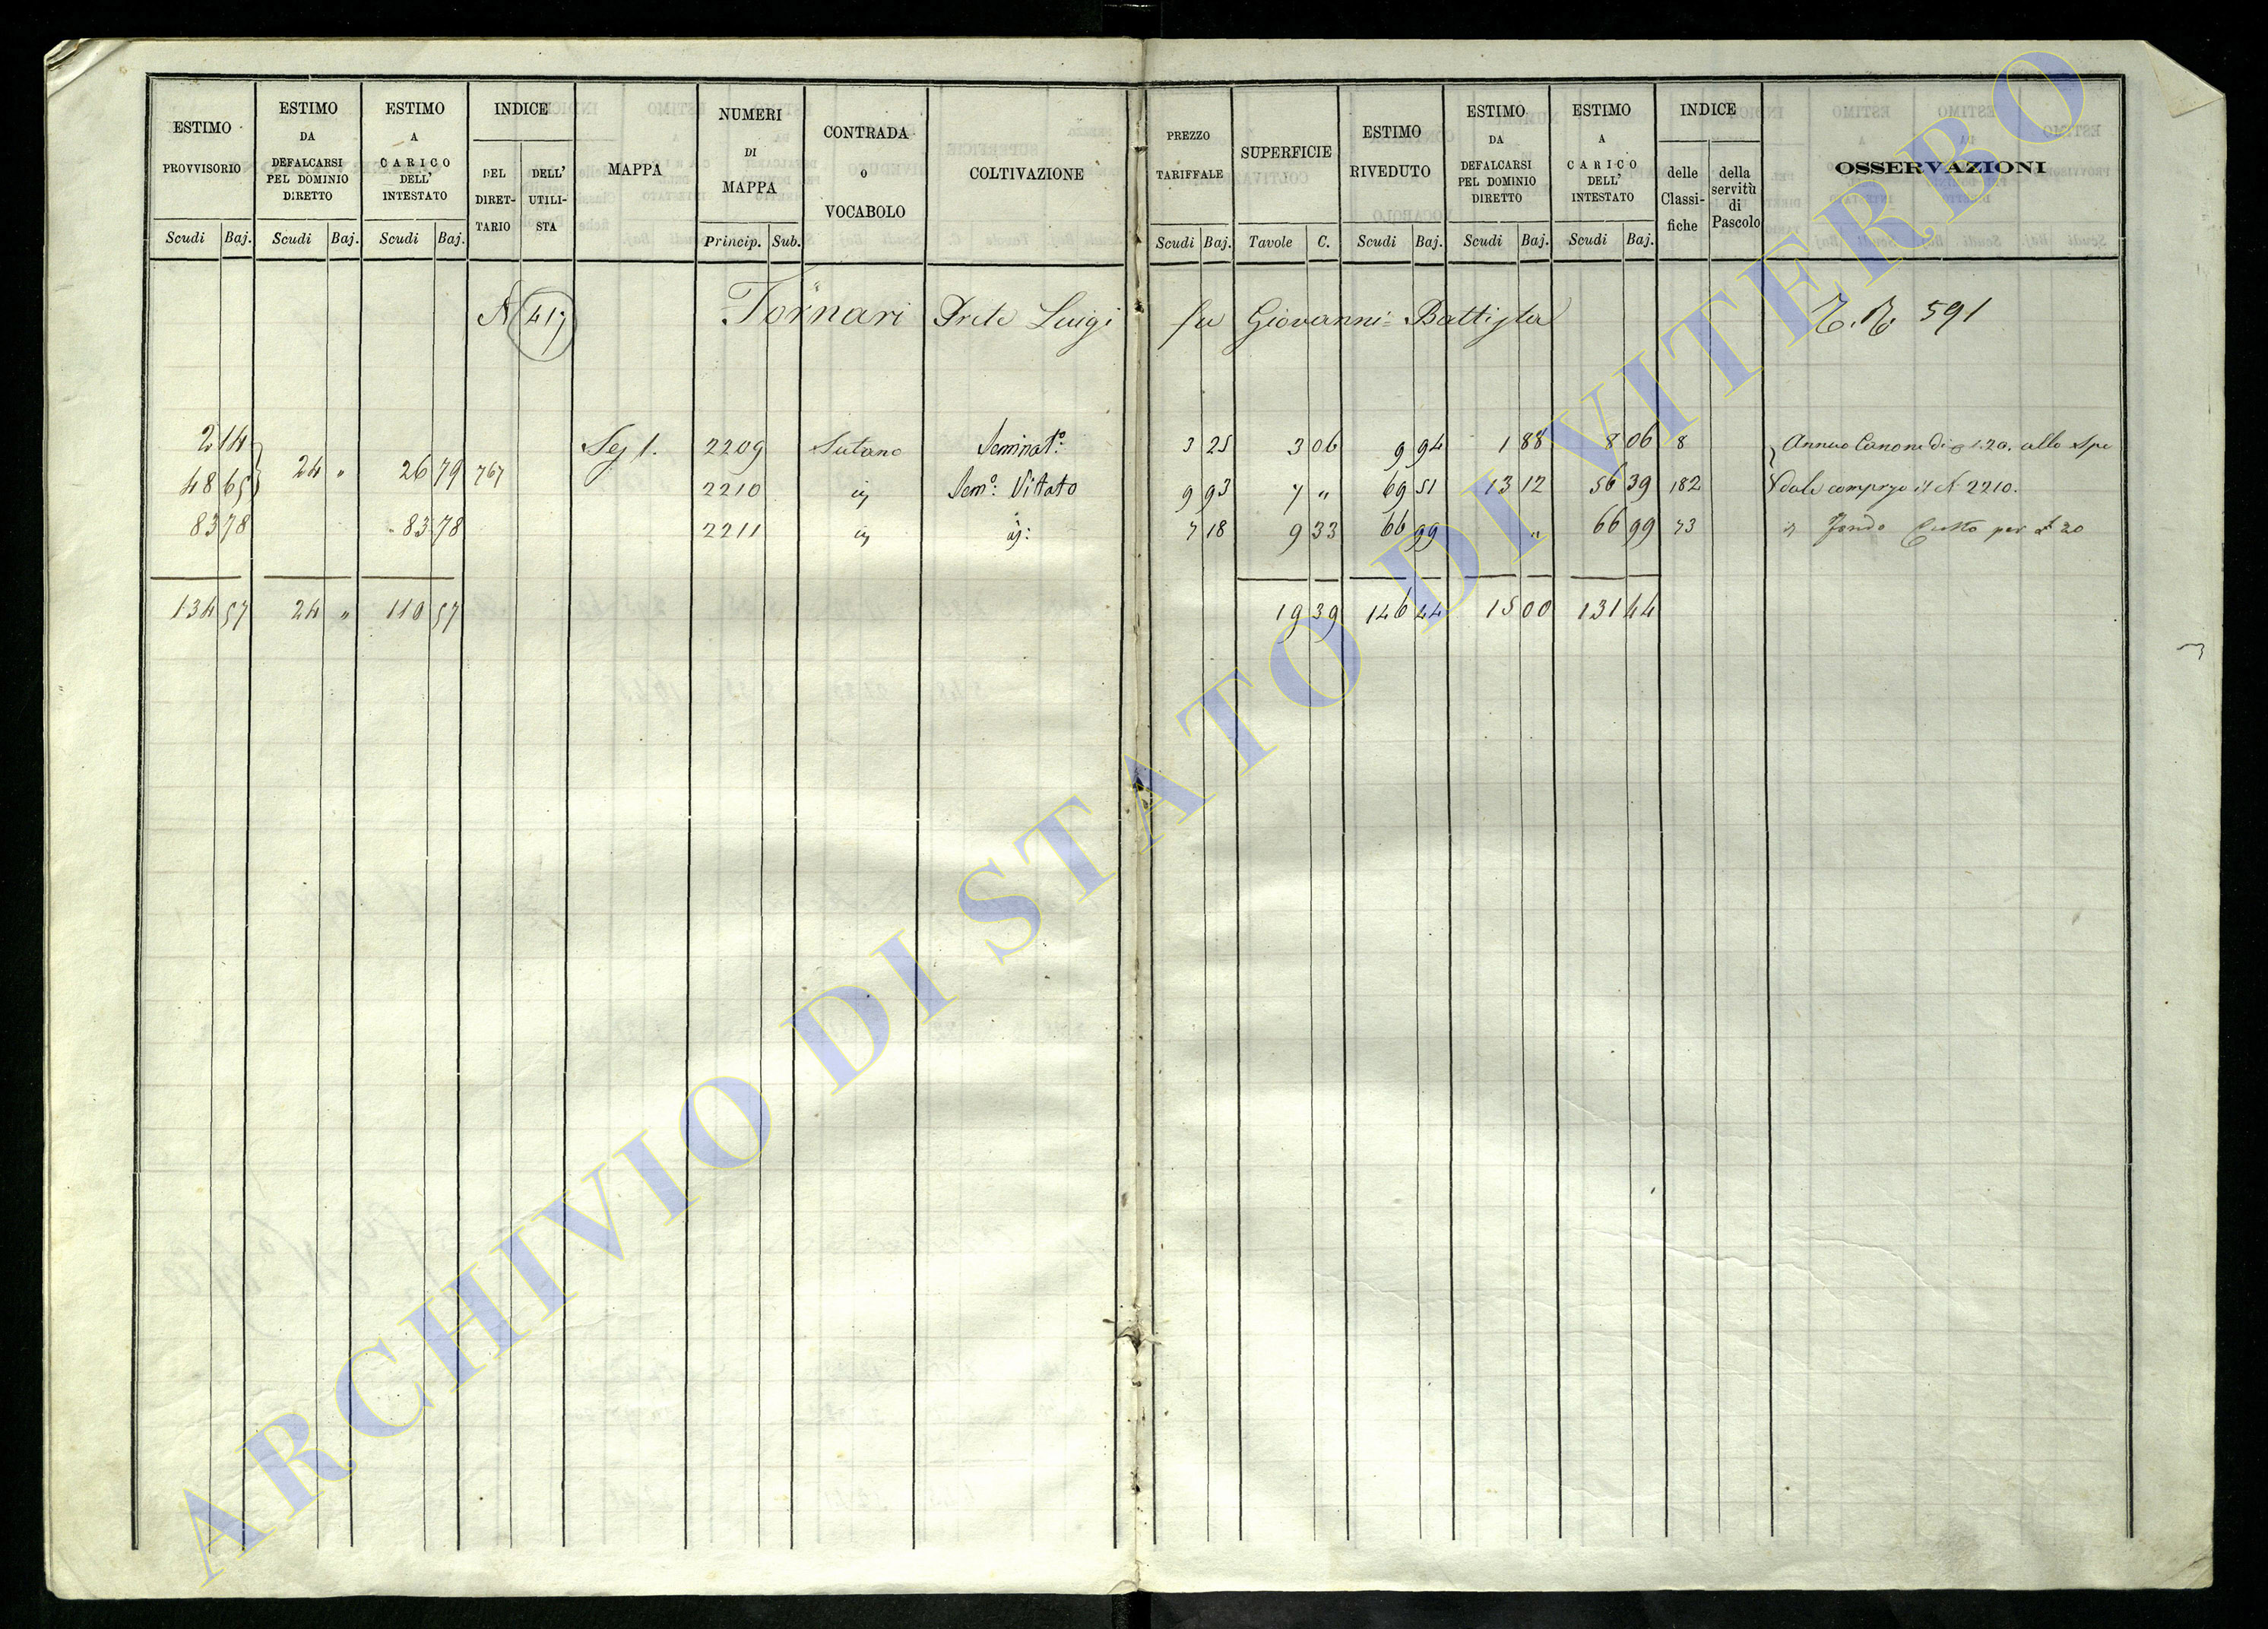 ESTIMO PROVVISORIO
Scudi Baj.
ESTIMO DA DEFALCARSI PEL DOMINIO DIRETTO
Scudi Baj.
ESTIMO A CARICO DELL' INTESTATO
Scudi Baj.
INDICE
DEL DIRET-TARIO
DELL' UTILI-STA
MAPPA
NUMERI DI MAPPA
Princip. Sub.
CONTRADA O VOCABOLO
COLTIVAZIONE
PREZZO TARIFFALE
Scudi Baj.
SUPERFICIE
Tavole C.
ESTIMO RIVEDUTO
Scudi Baj.
ESTIMO DA DEFALCARSI PEL DOMINIO DIRETTO
Scudi Baj.
ESTIMO A CARICO DELL' INTESTATO
Scudi Baj.
INDICE
delle Classi-fiche
della servitù di Pascolo
OSSERVAZIONI
N 417 Tornari Prete Luigi fu Giovanni Battista 591
2 14 2209 Sutano Seminato: 3 25 3 06 9 94 1 88 8 06 8 Annuo Canone di 1.20. allo Spe
48 65 24 " 26 79 767 2210 Sem°: Vitato 9 93 7 " 69 51 13 12 56 39 182 dale compreso il N 2210.
83 78 83 78 2211 7 18 9 33 66 99 " 66 99 73 Fondo per 20
134 57 24 " 110 57 19 39 146 44 15 00 131 44
ARCHIVIO DI STATO DI VITERBO